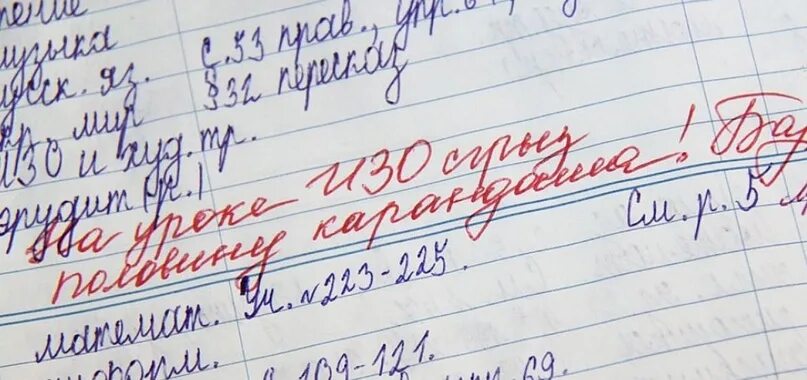 музыка
русск. яз. с. 53 прав., упр.
окр. мир §32 пересказ
ИЗО и худ. тр.
эрудит р. 1
На уроке ИЗО сгрыз
половину карандаша!
См. р. 5
математ. Уч. №223-225.
информ.
109-121.
69.